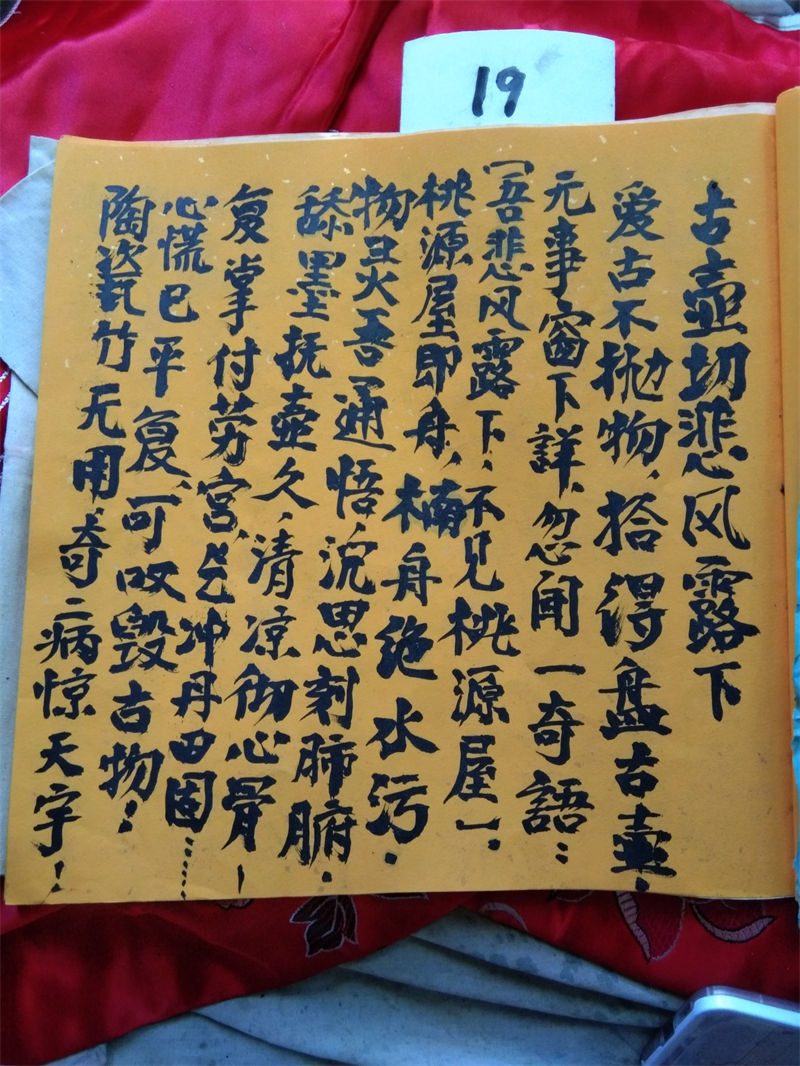 19
古壶切悲风露下
爱古不抛物，拾得盘古壶！
元事窗下詳，忽闻一奇語：
（吾悲风露下，不见桃源屋）.
桃源屋即舟，楠舟绝水污.
物灵吾通悟，沉思刻肺腑.
舔墨抚壶久，清凉彻心骨！
复掌付劳宫，气冲丹田固……
心慌已平复，可叹毁古物！
陶瓷竹无用，奇二病惊天宇！